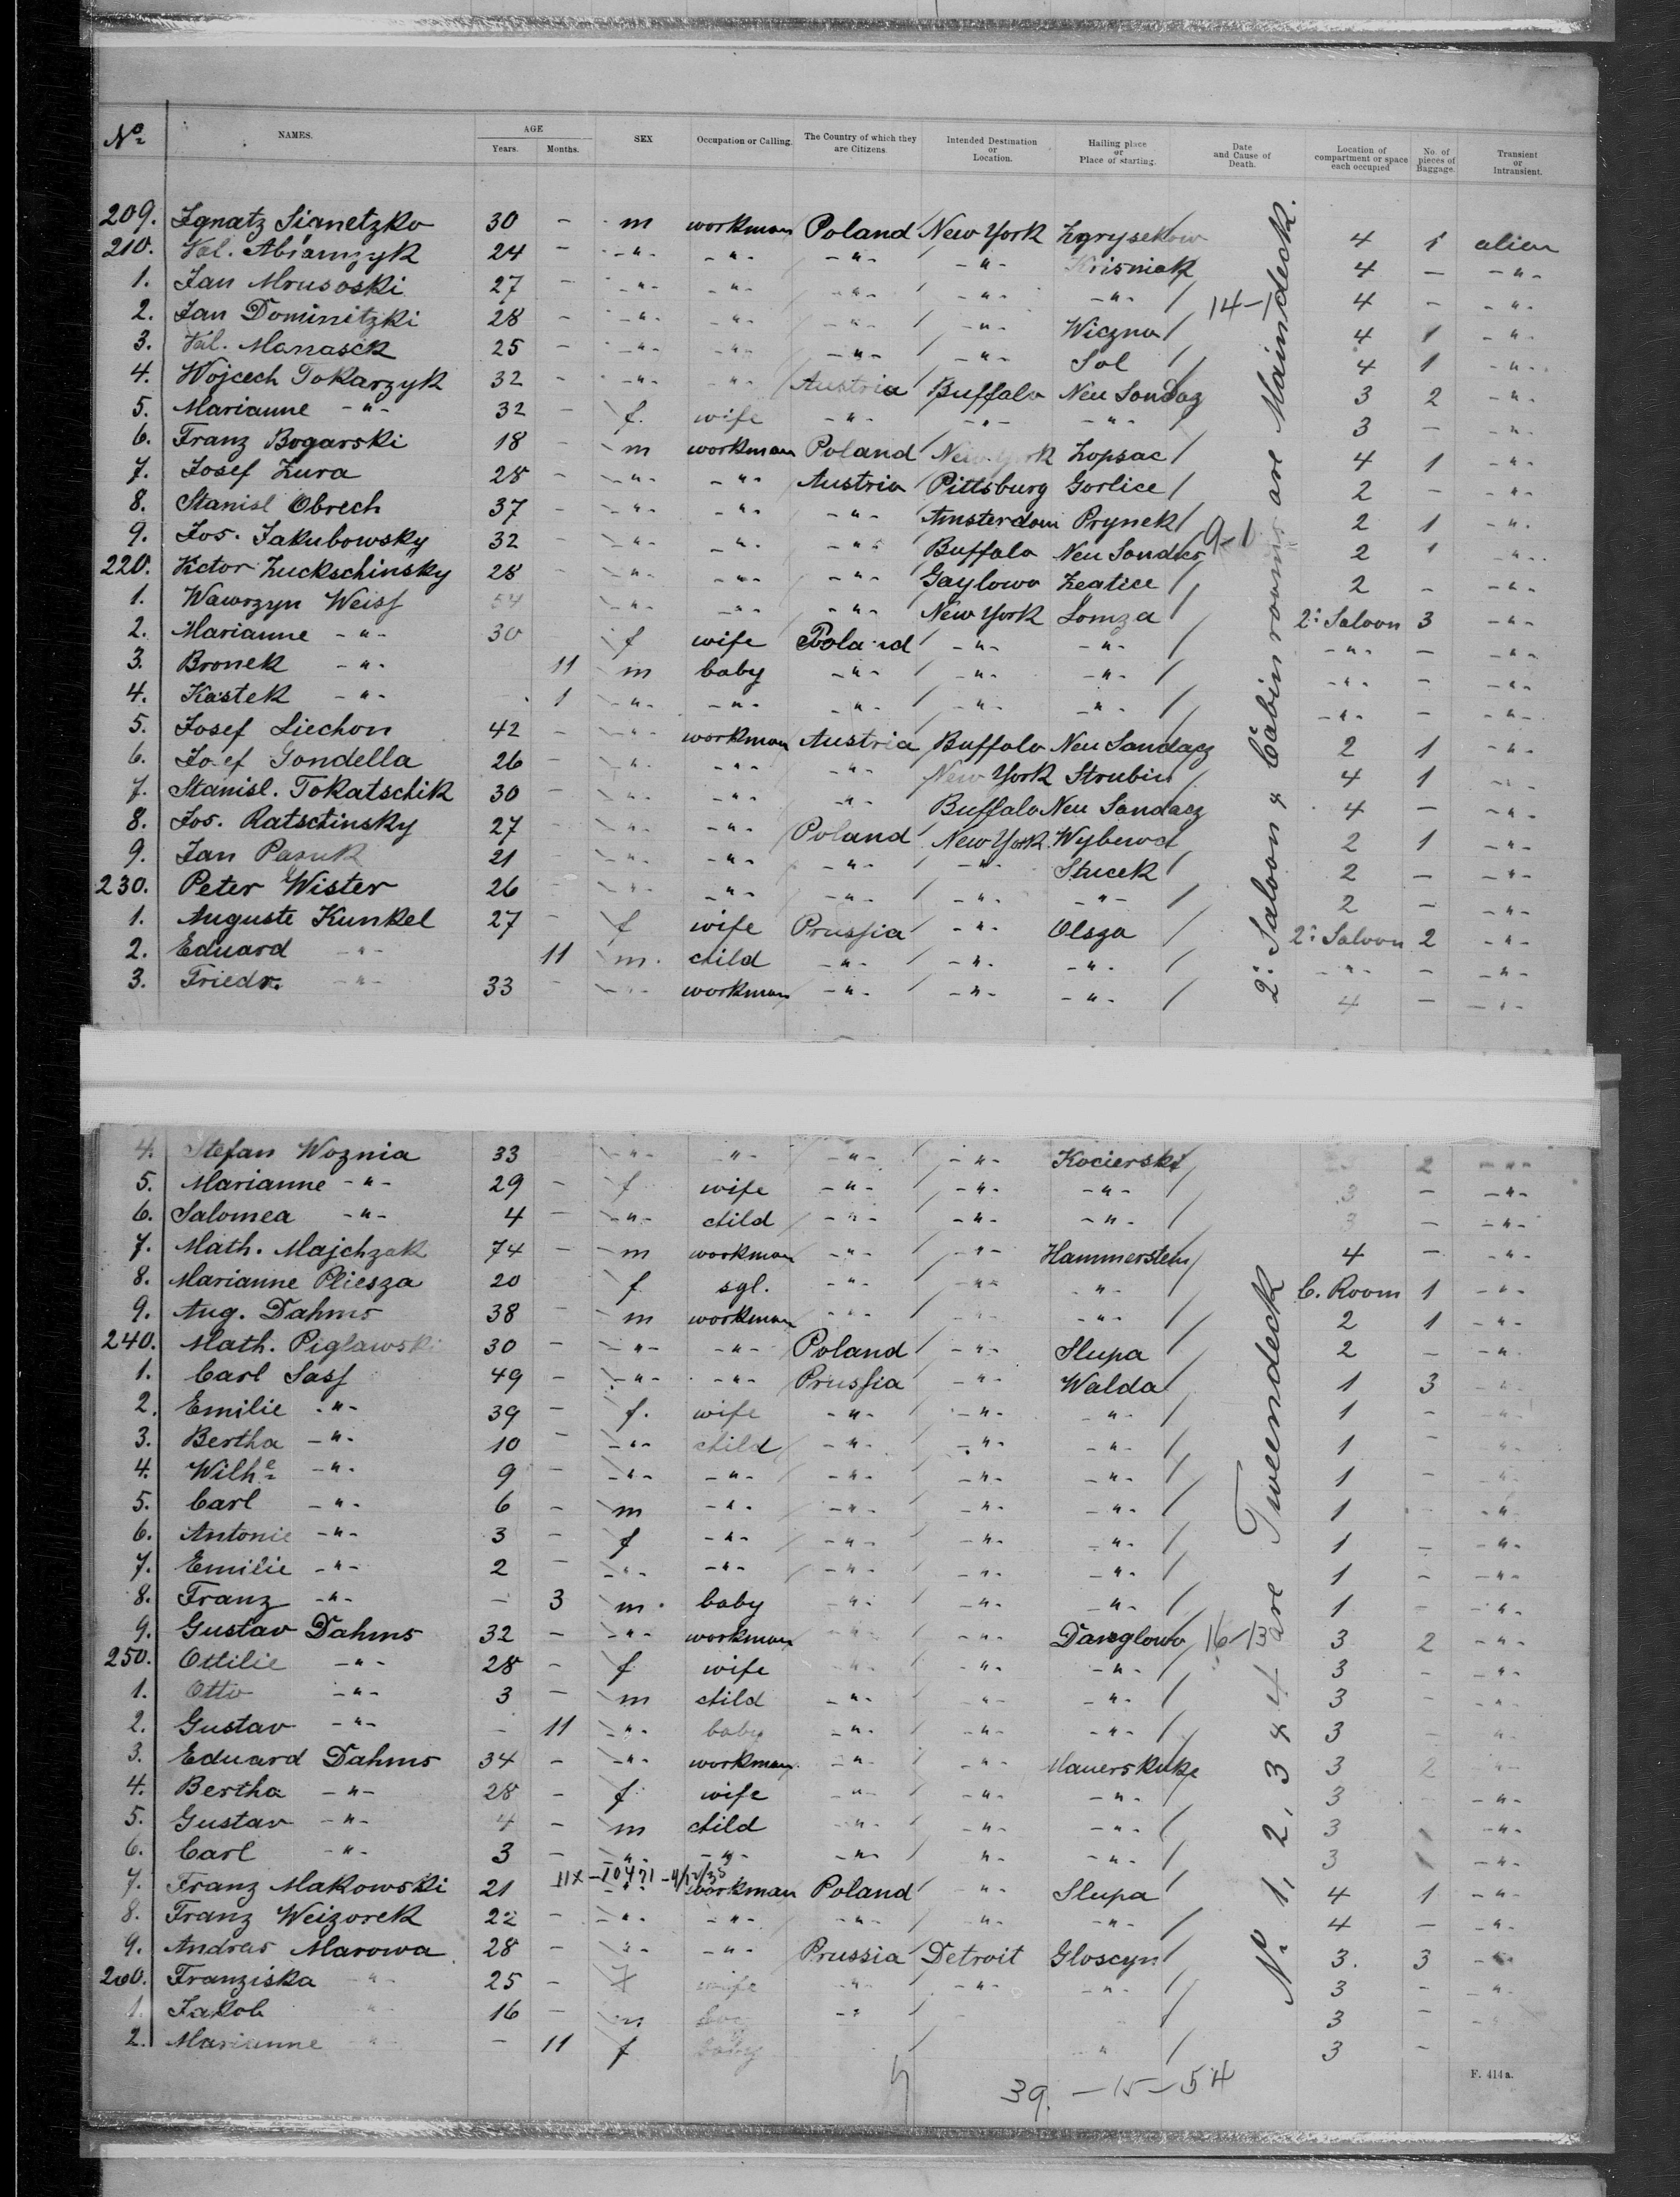 No. NAMES. AGE Years. Months. SEX Occupation or Calling. The Country of which they are Citizens. Intended Destination or Location. Hailing place or Place of starting. Date and Cause of Death. Location of compartment or space each occupied No. of pieces of Baggage. Transient or Intransient.
209. Ignatz Sianetzko 30 - m workman Poland New York 4 1 alien
210. Val. Abramzyk 24 - -"- -"- -"- -"- Krisniak 4 - -"-
1. Jan Mrusoski 27 - -"- -"- -"- -"- -"- 14-1 4 - -"-
2. Jan Dominitzki 28 - -"- -"- -"- -"- Wiczna 4 1 -"-
3. Val. Manasek 25 - -"- -"- -"- -"- Sol 4 1 -"-
4. Wojcech Tokarzyk 32 - -"- -"- Austria Buffalo Neu Sondaz 3 2 -"-
5. Marianne -"- 32 - f. wife -"- -"- -"- 3 - -"-
6. Franz Bogarski 18 - m workman Poland New York Zopsac 4 1 -"-
7. Josef Zura 28 - -"- -"- Austria Pittsburg Gorlice 2 - -"-
8. Stanisl Obrech 37 - -"- -"- -"- Amsterdam Prynek 2 1 -"-
9. Jos. Jakubowsky 32 - -"- -"- -"- Buffalo Neu Sondec 9-1 2 1 -"-
220. Victor Zuckschinsky 28 - -"- -"- -"- Gaylowo Zeatice 2 - -"-
1. Wawrzyn Weiss 54 -"- -"- -"- New York Lomza 2: Saloon 3 -"-
2. Marianne -"- 30 f wife Poland -"- -"- -"- - -"-
3. Bronek -"- 11 m baby -"- -"- -"- -"- - -"-
4. Kastek -"- 1 -"- -"- -"- -"- -"- -"- - -"-
5. Josef Liechon 42 - -"- workman Austria Buffalo Neu Sandacz 2 1 -"-
6. Josef Gondella 26 - -"- -"- -"- New York Strubin 4 1 -"-
7. Stanisl. Tokatschik 30 - -"- -"- -"- Buffalo Neu Sandacz 4 - -"-
8. Jos. Ratschinsky 27 - -"- -"- Poland New York 2 1 -"-
9. Jan Pasuk 21 - -"- -"- -"- -"- Stucek 2 - -"-
230. Peter Wister 26 - -"- -"- -"- -"- -"- 2 - -"-
1. Auguste Kunkel 27 - f wife Prussia -"- Olsza 2: Saloon 2 -"-
2. Eduard -"- 11 m. child -"- -"- -"- -"- - -"-
3. Friedr. -"- 33 - -"- workman -"- -"- -"- 4 - -"-
2: Saloon & Cabin rooms are Maindeck.
4. Stefan Woznia 33 -"- -"- -"- -"- Kocierski 2 -"-
5. Marianne -"- 29 - f wife -"- -"- -"- 3 - -"-
6. Salomea -"- 4 - -"- child -"- -"- -"- 3 - -"-
7. Math. Majchzak 74 - m workman -"- -"- Hammerstein 4 - -"-
8. Marianne Pliesza 20 f sgl. -"- -"- -"- C. Room 1 -"-
9. Aug. Dahms 38 - m workman -"- -"- -"- 2 1 -"-
240. Math. Piglawski 30 - -"- -"- Poland -"- Slupa 2 - -"-
1. Carl Sass 49 - -"- -"- Prussia -"- Walda 1 3 -"-
2. Emilie -"- 39 - f. wife -"- -"- -"- 1 - -"-
3. Bertha -"- 10 - -"- child -"- -"- -"- 1 - -"-
4. Wilhe -"- 9 - -"- -"- -"- -"- -"- 1 - -"-
5. Carl -"- 6 - m -"- -"- -"- -"- 1 -"-
6. Antonie -"- 3 - f -"- -"- -"- -"- 1 - -"-
7. Emilie -"- 2 - -"- -"- -"- -"- -"- 1 - -"-
8. Franz -"- - 3 m. baby -"- -"- -"- 1 - -"-
9. Gustav Dahms 32 - -"- workman -"- -"- Danglowo 16-13 3 2 -"-
250. Ottilie -"- 28 - f wife -"- -"- -"- 3 - -"-
1. Otto -"- 3 - m child -"- -"- -"- 3 - -"-
2. Gustav -"- - 11 -"- baby -"- -"- -"- 3 - -"-
3. Eduard Dahms 34 - -"- workman -"- -"- 3 2 -"-
4. Bertha -"- 28 - f. wife -"- -"- -"- 3 - -"-
5. Gustav -"- 4 - m child -"- -"- -"- 3 -"-
6. Carl -"- 3 - -"- -"- -"- -"- -"- 3 -"-
7. Franz Makowski 21 -"- workman Poland -"- Slupa 4 1 -"-
8. Franz Weizorek 22 - -"- -"- -"- -"- -"- 4 - -"-
9. Andras Marowa 28 - -"- -"- Prussia Detroit Gloscyn 3. 3 -"-
260. Franziska -"- 25 - f wife -"- -"- -"- 3 - -"-
1. Jakob -"- 16 - m boy -"- 3 - -"-
2. Marianne -"- - 11 f baby -"- 3 -
No. 1, 2, 3 & 4 are Tweendeck
39. -15-54
F. 414a.